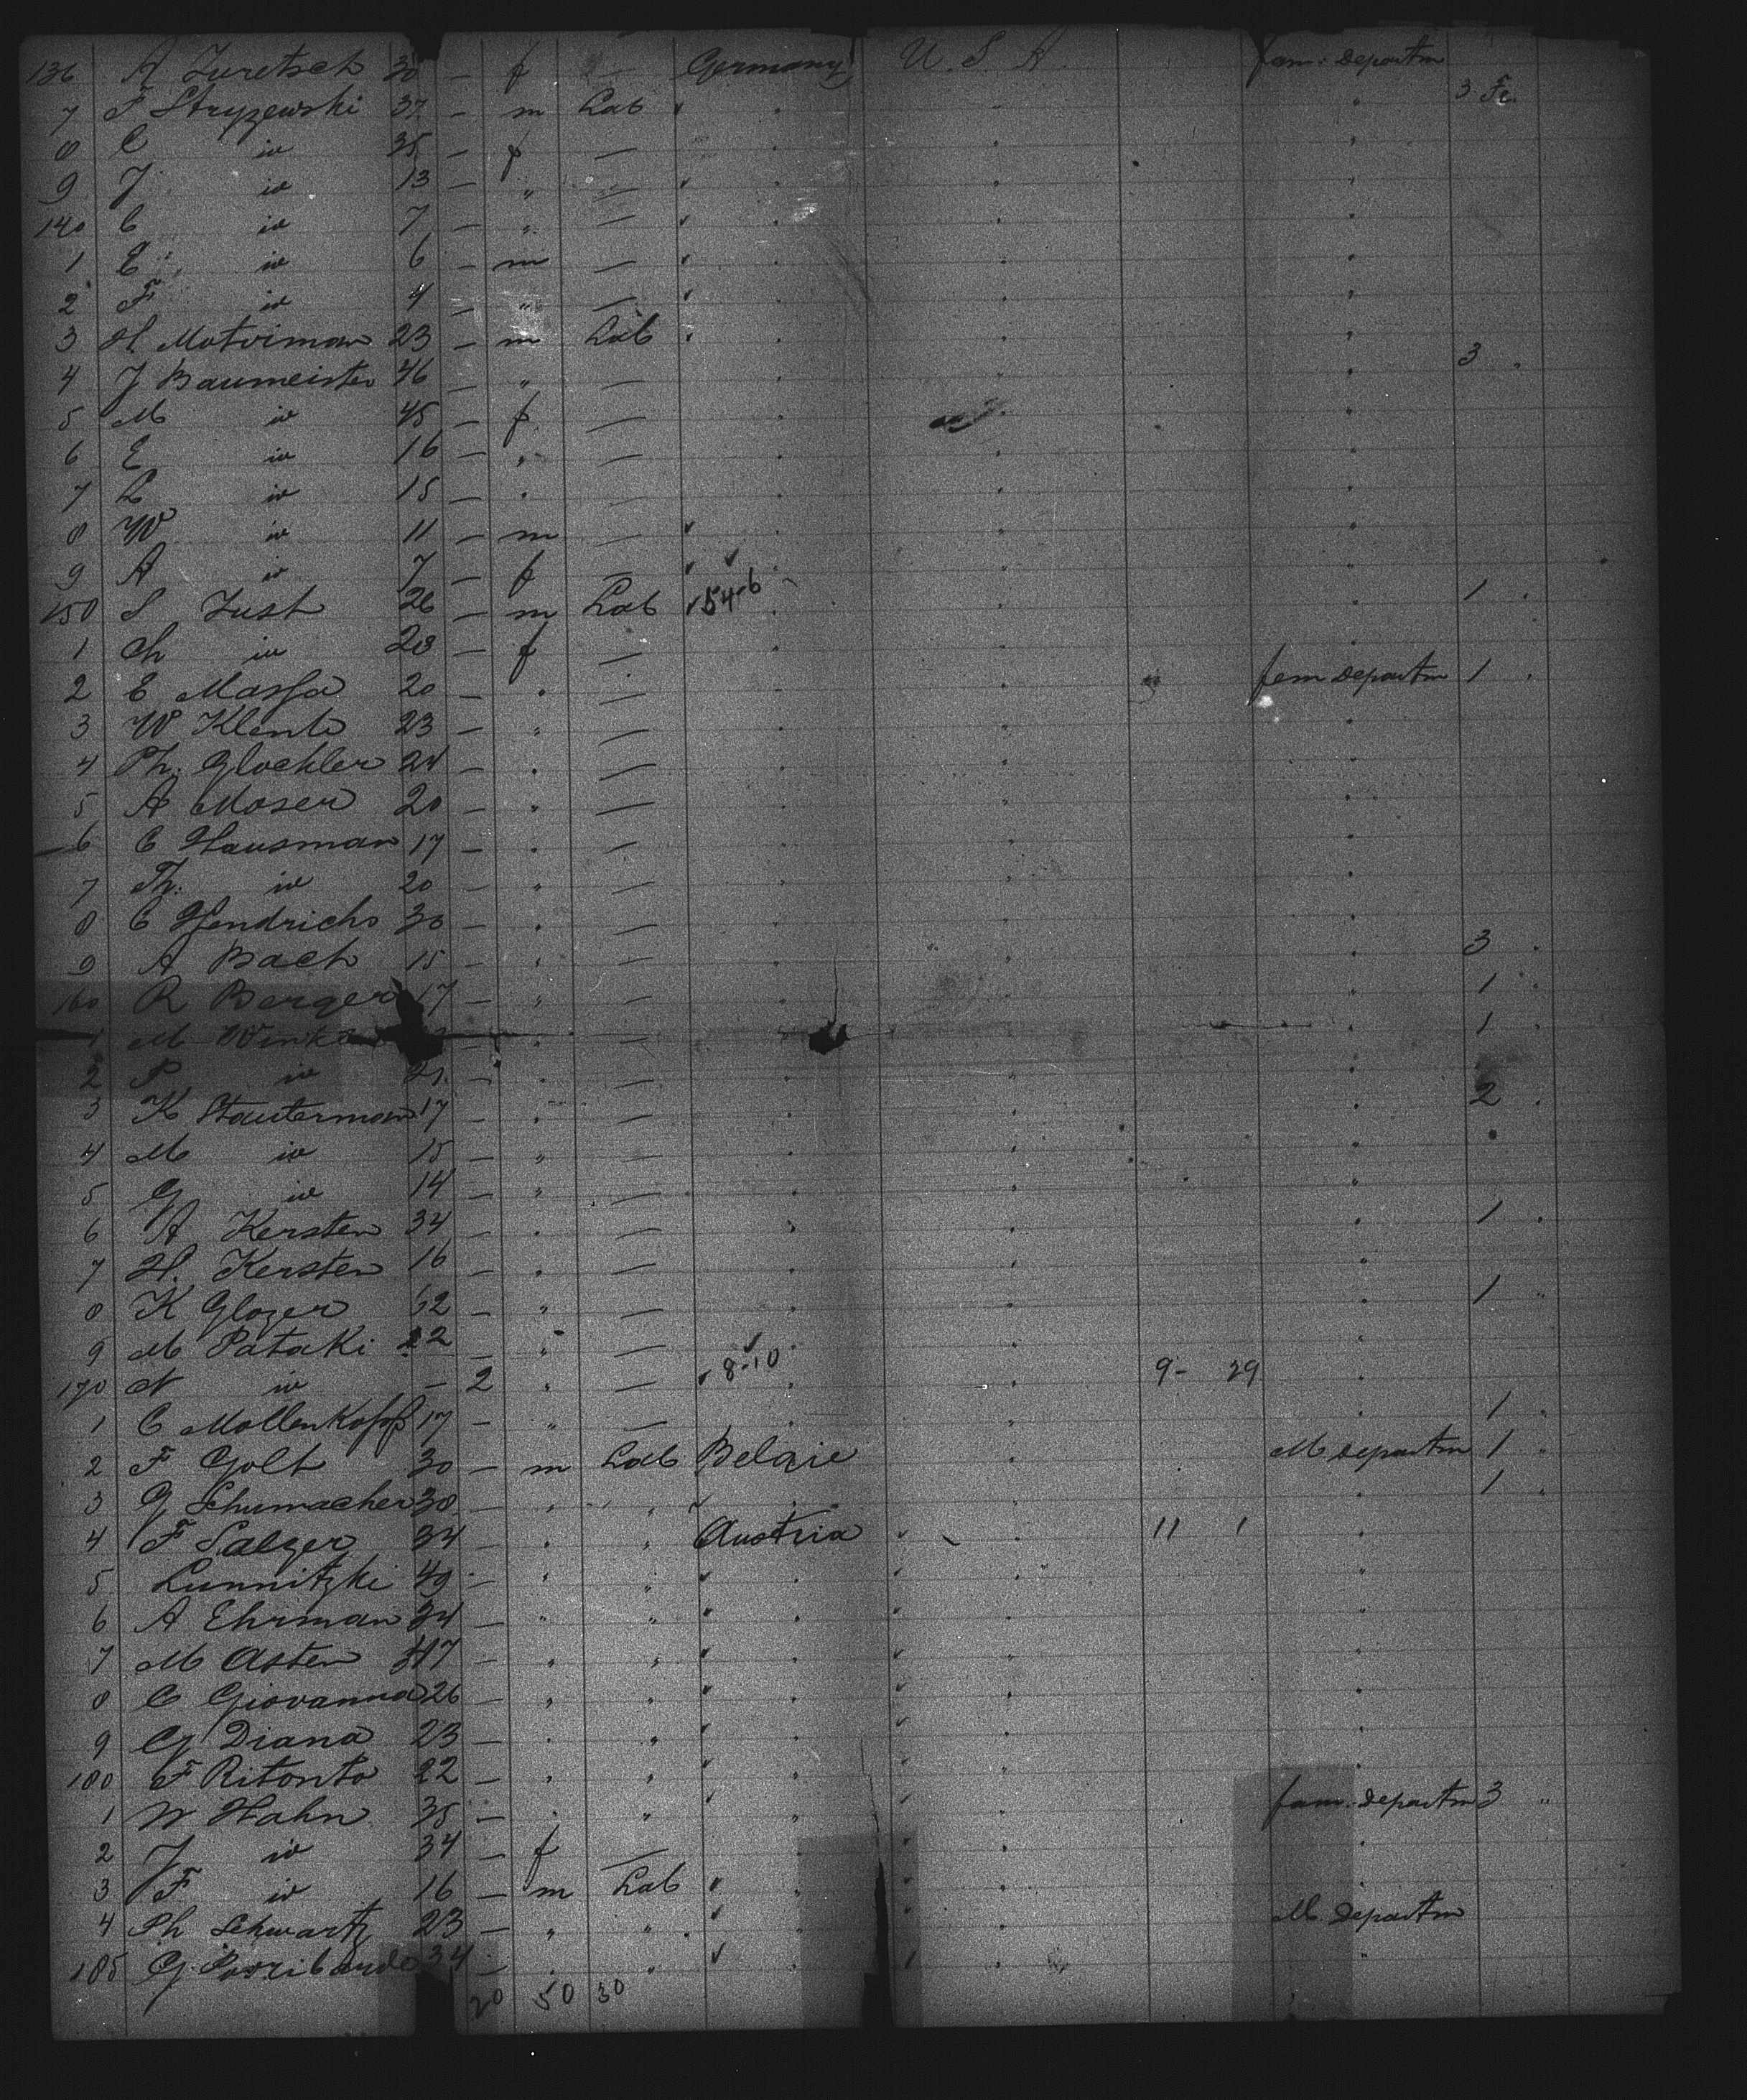 136 A Juretsch 30 — f — Germany U.S.A. fem: Departm
7 F Stryzewski 37 — m Lab " " " " 3 Fe.
8 C io 35 — f — " " "
9 J io 13 — " — " " "
140 C io 7 — " — " " "
1 E io 6 — m — " " "
2 F io 4 — " — " " "
3 H Motviman 23 — m Lab " " "
4 J Baumeister 46 — " — " " " 3 "
5 M io 45 — f — " " "
6 E io 16 — " — " " "
7 L io 15 — " — " " "
8 W io 11 — m — " " "
9 A io 7 — f — " " "
150 S Just 26 — m Lab 54-6 " " 1 "
1 Ch io 28 — f — " " "
2 E Massa 20 — " — " " fem Departm 1 "
3 W Klenk 23 — " — " " "
4 Ph. Glockler 24 — " — " " "
5 A Moser 20 — " — " " "
6 C Hausman 17 — " — " " "
7 Th. io 20 — " — " " "
8 C Hendrichs 30 — " — " " "
9 A Bach 15 — " — " " " 3 "
160 R Berger 17 — " — " " " 1 "
1 M — " — " " " 1 "
2 P io 21 — " — " " "
3 K Stauterman 17 — " — " " " 2 "
4 M io 15 — " — " " "
5 G io 14 — " — " " "
6 A Kersten 34 — " — " " " 1 "
7 H. Kersten 16 — " — " " "
8 K Glozer 62 — " — " " " 1 "
9 M Pataki 22 — " — " " "
170 N io — 2 " — 8-10 " " 9- 29 "
1 C Mollenkopf 17 — " — " " " 1 "
2 F Golt 30 — m Lab Belgie " M Departm 1 "
3 G Schumacher 30 — " " " " " 1 "
4 F Salzer 34 — " " Austria " 11 1 "
5 Lunnitzki 49 — " " " " "
6 A Ehrman 34 — " " " " "
7 M Asten 17 — " " " " "
8 C Giovanna 26 — " " " " "
9 G Diana 23 — " " " " "
180 F Ritonto 22 — " " " " "
1 W Hahn 35 — " " " " fam. departm 3 "
2 J io 34 — f — " " "
3 F io 16 — m Lab " " "
4 Ph Schwartz 23 — " " " " M. Departm
185 G 34 — " " " " "
20 50 30